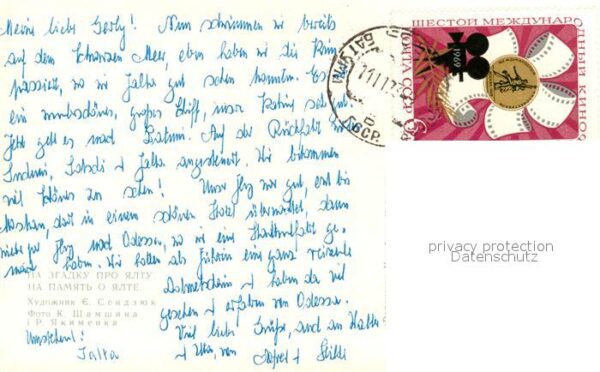 Meine liebe Gerly! Nun schwimmen wir bereits
auf dem Schwarzen Meer, eben haben wir die Krim
passiert, wo wir Jalta gut sehen konnten. Es ist
ein wunderschönes, großes Schiff, unser Kabine sehr
Jetzt geht es nach Batum. Auf der Rückfahrt
Suchumi, Sotschi + Jalta angesteuert. Wir bekommen
viel Schönes zu sehen! Unser Flug war gut, erst bis
Moskau, dort in einem schönen Hotel übernachtet, dann
mehr per Flug nach Odessa, wo wir eine Stadtrundfahrt ge-
macht haben. Wir hatten als Führerin ein ganz reizende
Dolmetscherin + haben da viel
gesehen + erfahren von Odessa.
Viel liebe Grüße, auch an Walter
+ von
НА ЗГАДКУ ПРО ЯЛТУ
НА ПАМЯТЬ О ЯЛТЕ
Художник Є. Сендзюк
Фото К. Шамшина
і Р. Якименка
Umstehend!
Jalta
ШЕСТОЙ МЕЖДУНАРОДНЫЙ КИНОФ
ПОЧТА СССР
1969
6
БАТУМИ
СССР
privacy protection
Datenschutz